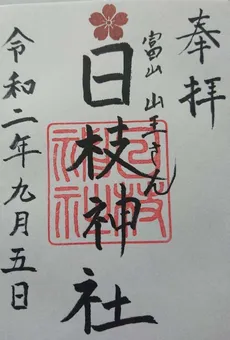 奉拝
富山 山王さん
日枝神社
令和二年九月五日
日枝神社